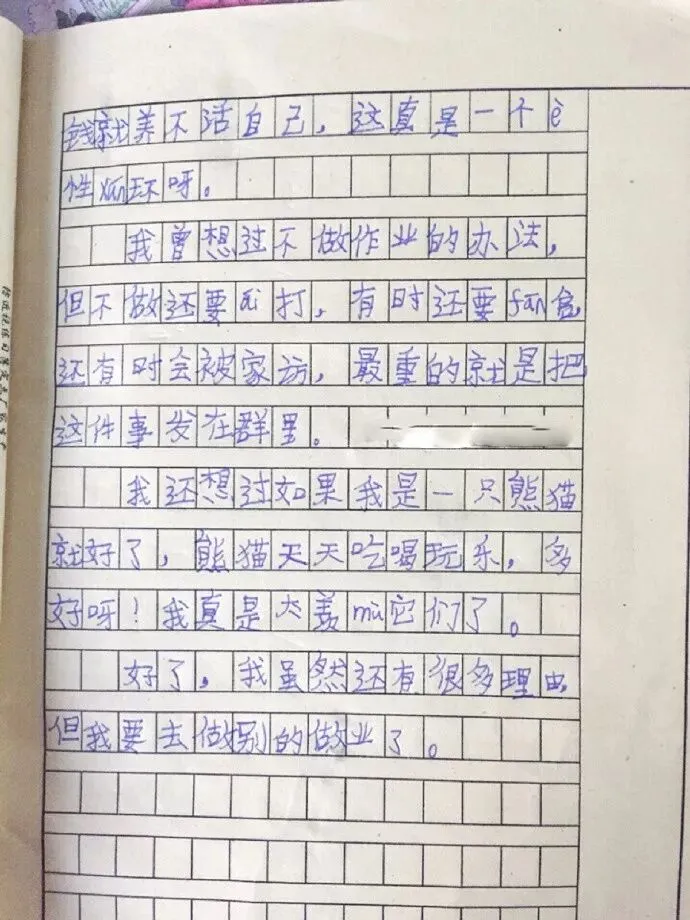 钱就养不活自己，这真是一个è
性xún环呀。
我曾想过不做作业的办法，
但不做还要ái打，有时还要fán危
还有时会被家访，最重的就是把
这件事发在群里。
我还想过如果我是一只熊猫
就好了，熊猫天天吃喝玩乐，多
好呀！我真是太羡mù它们了。
好了，我虽然还有很多理由，
但我要去做别的做业了。